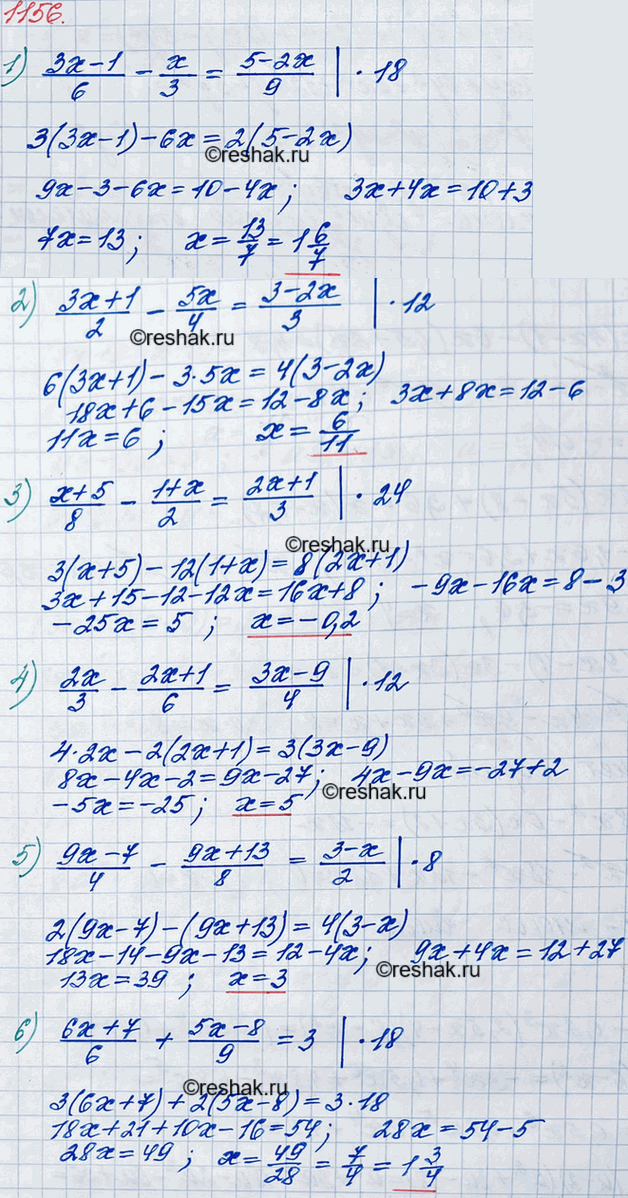 1156.
1) (3x-1)/6 - x/3 = (5-2x)/9 | · 18
3(3x-1)-6x=2(5-2x)
©reshak.ru
9x-3-6x=10-4x; 3x+4x=10+3
7x=13; x=13/7=1 6/7
2) (3x+1)/2 - 5x/4 = (3-2x)/3 | · 12
©reshak.ru
6(3x+1)-3·5x=4(3-2x)
18x+6-15x=12-8x; 3x+8x=12-6
11x=6; x=6/11
3) (x+5)/8 - (1+x)/2 = (2x+1)/3 | · 24
©reshak.ru
3(x+5)-12(1+x)=8(2x+1)
3x+15-12-12x=16x+8; -9x-16x=8-3
-25x=5; x=-0,2
4) 2x/3 - (2x+1)/6 = (3x-9)/4 | · 12
4·2x-2(2x+1)=3(3x-9)
8x-4x-2=9x-27; 4x-9x=-27+2
-5x=-25; x=5
©reshak.ru
5) (9x-7)/4 - (9x+13)/8 = (3-x)/2 | · 8
2(9x-7)-(9x+13)=4(3-x)
18x-14-9x-13=12-4x; 9x+4x=12+27
13x=39; x=3
©reshak.ru
6) (6x+7)/6 + (5x-8)/9 = 3 | · 18
©reshak.ru
3(6x+7)+2(5x-8)=3·18
18x+21+10x-16=54; 28x=54-5
28x=49; x=49/28=7/4=1 3/4